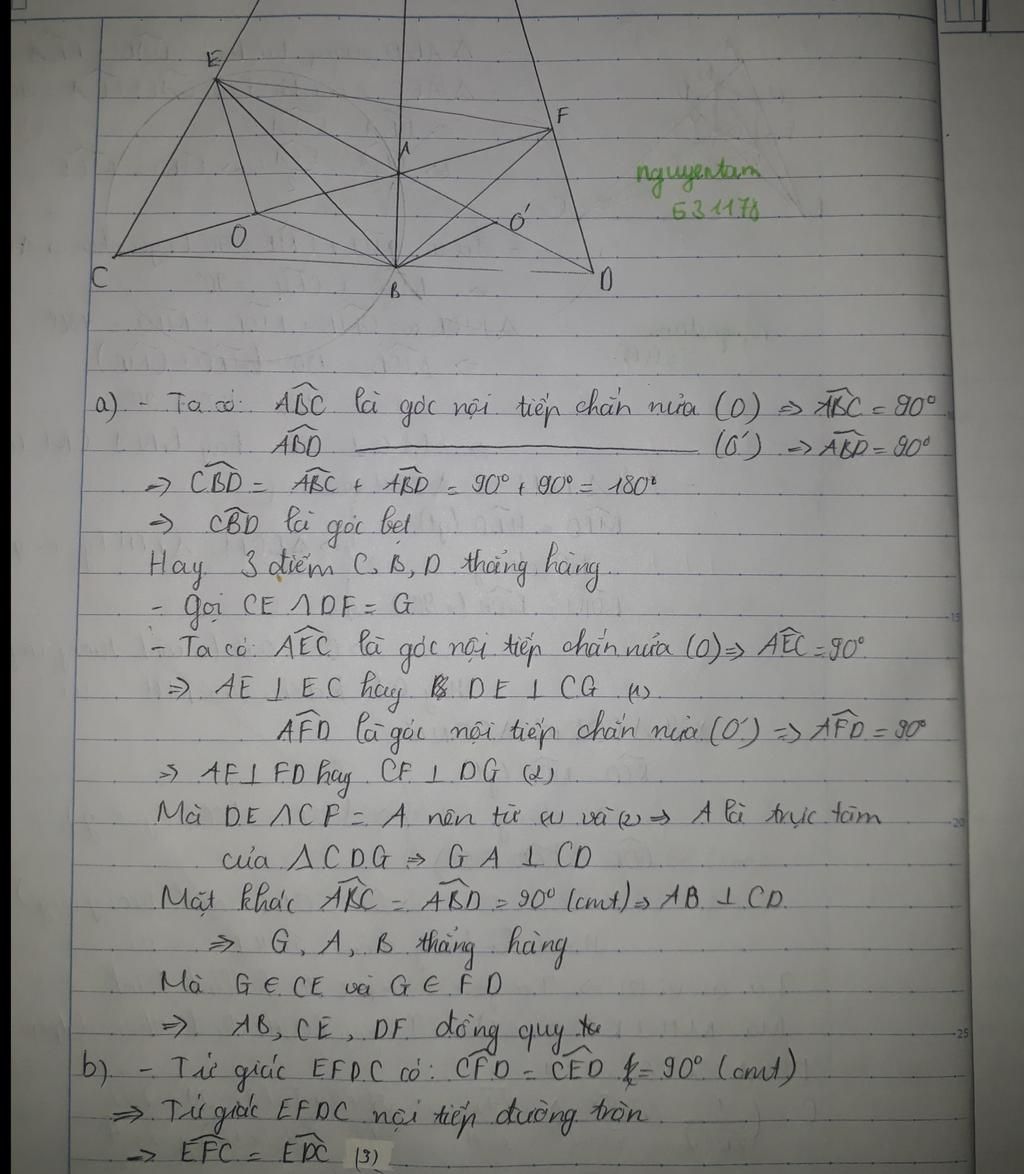 E
F
A
nguyentam
631178
O
O'
C
B
D
a) - Ta có: ABC là góc nội tiếp chắn nửa (O) => ABC = 90°
ABD ——— (O') => ABD = 90°
=> CBD = ABC + ABD = 90° + 90° = 180°
=> CBD là góc bẹt
Hay 3 điểm C, B, D thẳng hàng
- Gọi CE ∩ DF = G
- Ta có: AEC là góc nội tiếp chắn nửa (O) => AEC = 90°
=> AE ⊥ EC hay DE ⊥ CG (1)
AFD là góc nội tiếp chắn nửa (O') => AFD = 90°
=> AF ⊥ FD hay CF ⊥ DG (2)
Mà DE ∩ CF = A nên từ (1) và (2) => A là trực tâm
của ΔCDG => GA ⊥ CD
Mặt khác ABC = ABD = 90° (cmt) => AB ⊥ CD
=> G, A, B thẳng hàng
Mà G ∈ CE và G ∈ FD
=> AB, CE, DF đồng quy
b) - Tứ giác EFDC có: CFD = CED = 90° (cmt)
=> Tứ giác EFDC nội tiếp đường tròn
=> EFC = EDC (3)